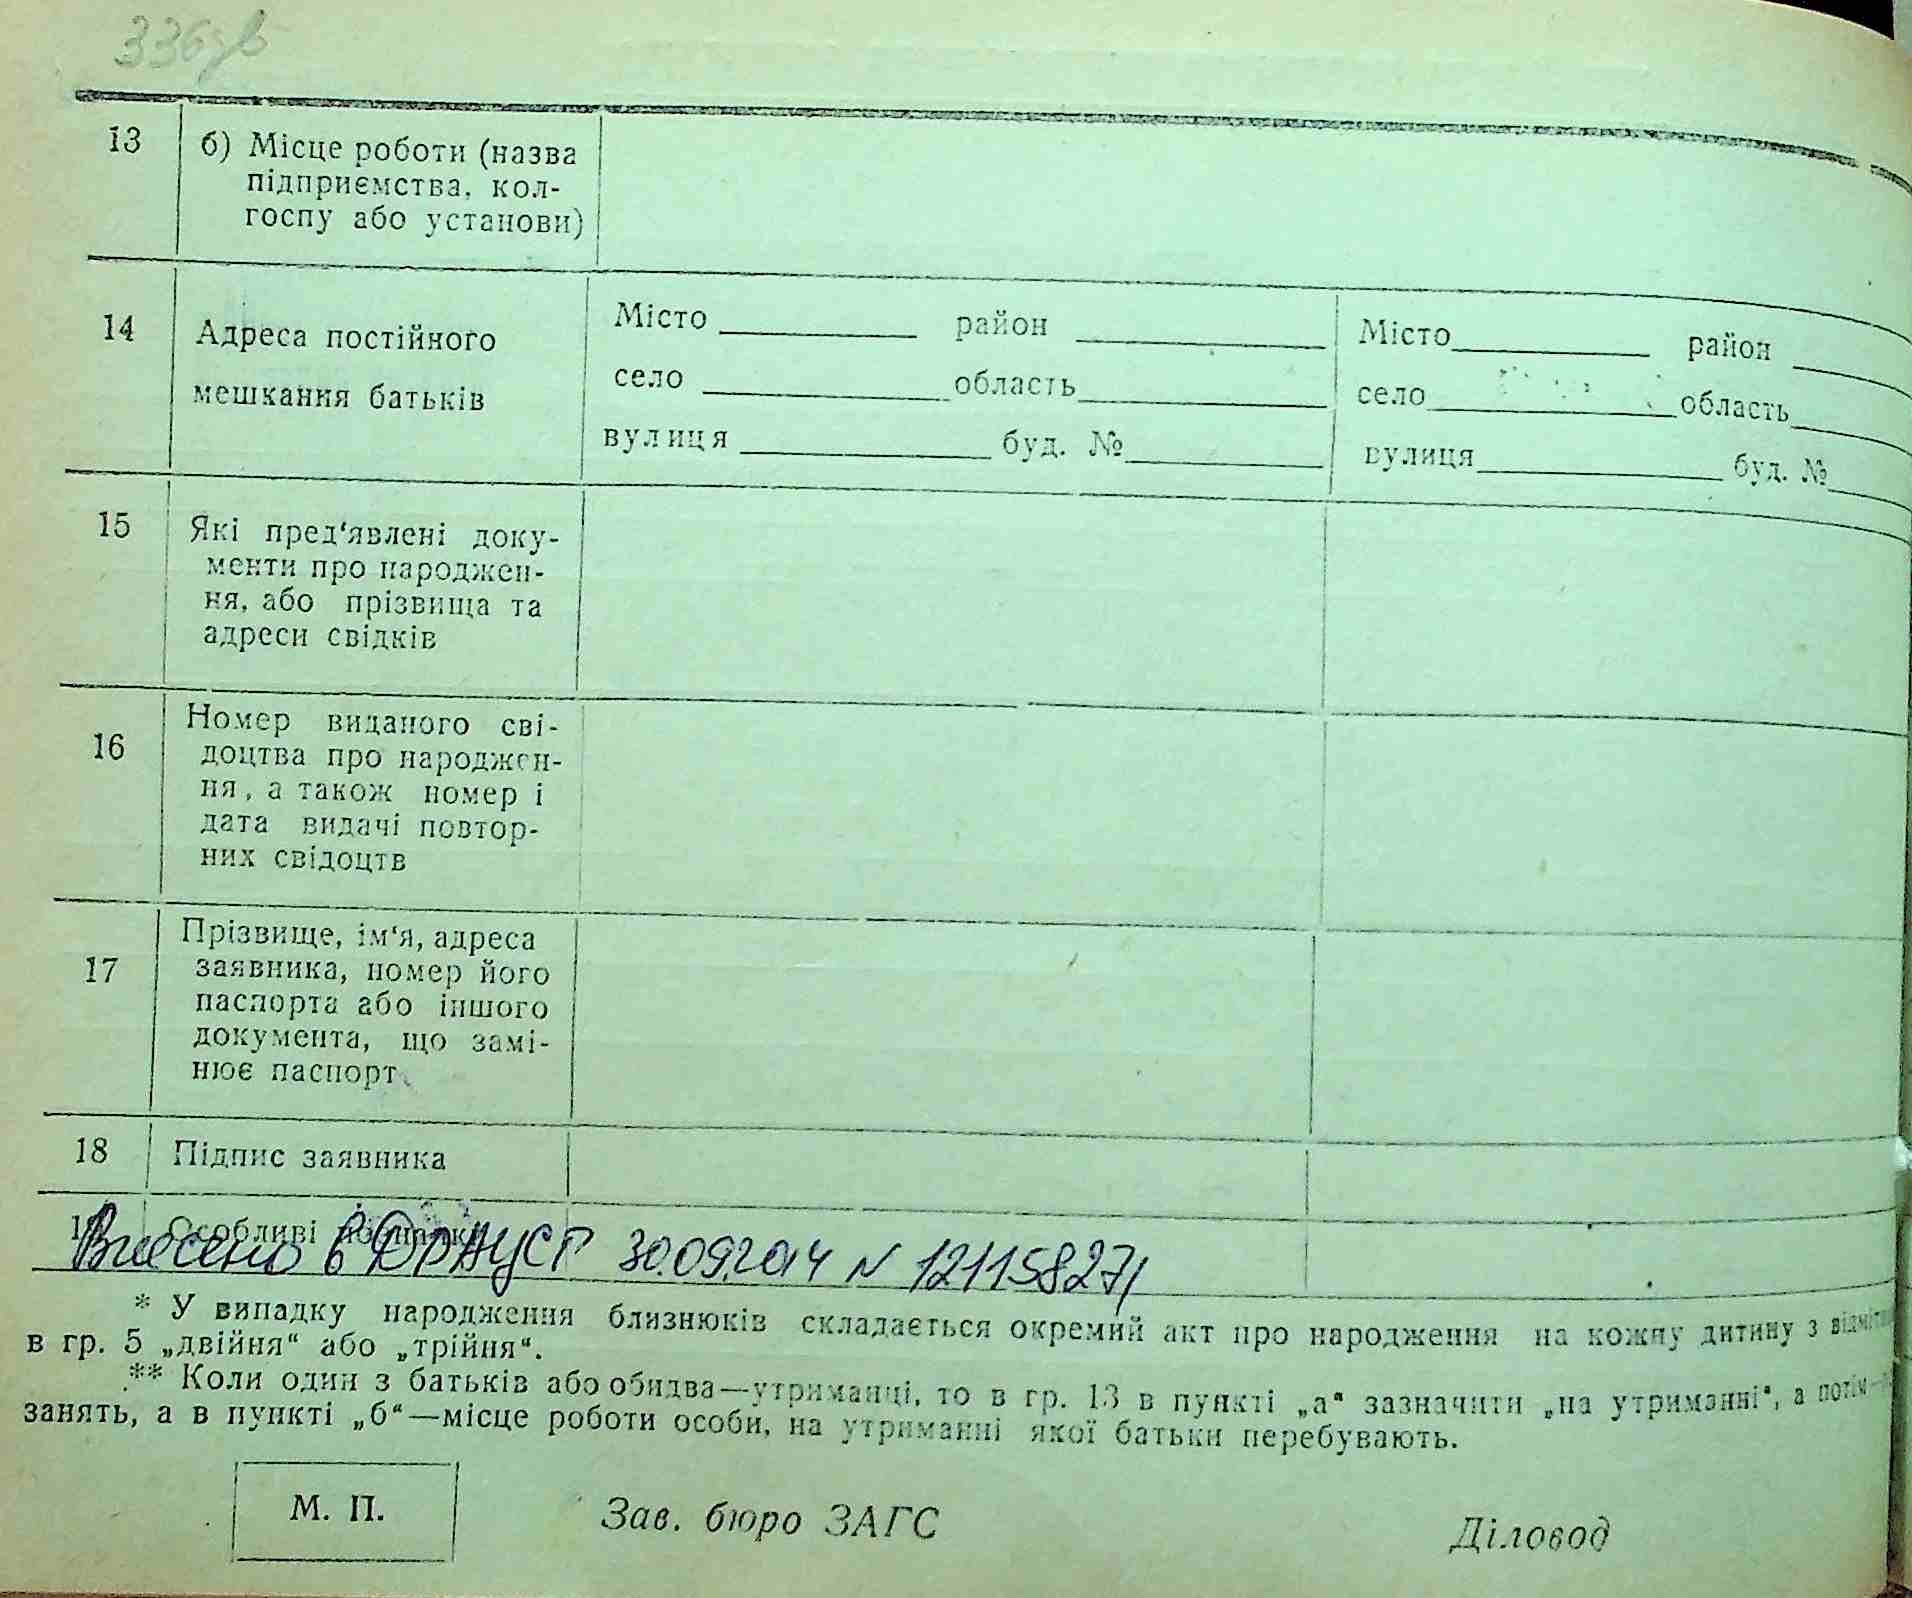 336зв
13 б) Місце роботи (назва
підприємства, кол-
госпу або установи)
14 Адреса постійного
мешкания батьків
Місто район
село область
вулиця буд. №
Місто район
село область
вулиця буд. №
15 Які пред‘явлені доку-
менти про народжен-
ня, або прізвища та
адреси свідків
16 Номер виданого сві-
доцтва про народжен-
ня, а також номер і
дата видачі повтор-
них свідоцтв
17 Прізвище, ім‘я, адреса
заявника, номер його
паспорта або іншого
документа, що замі-
нює паспорт
18 Підпис заявника
Особливі
Внесено в ДРАЦСГ 30.09.2014 N 12115827,
* У випадку народження близнюків складається окремий акт про народження на кожну дитину з
в гр. 5 „двійня“ або „трійня“.
** Коли один з батьків або обидва—утриманці, то в гр. 13 в пункті „а“ зазначити „на утриманні“, а потім—
занять, а в пункті „б“—місце роботи особи, на утриманні якої батьки перебувають.
М. П. Зав. бюро ЗАГС Діловод